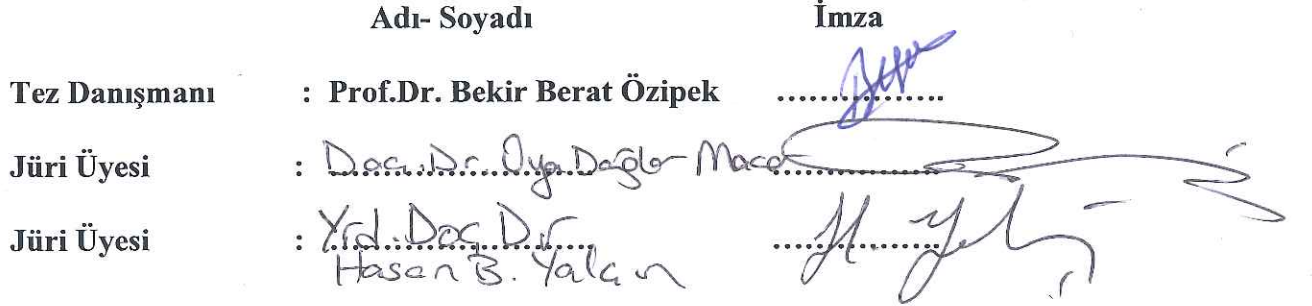 Adı- Soyadı İmza
Tez Danışmanı : Prof.Dr. Bekir Berat Özipek ..................
Jüri Üyesi : Doç. Dr. Oya Dağlar Macar
Jüri Üyesi : Yrd. Doç. Dr. ..................
Hasan B. Yalçın